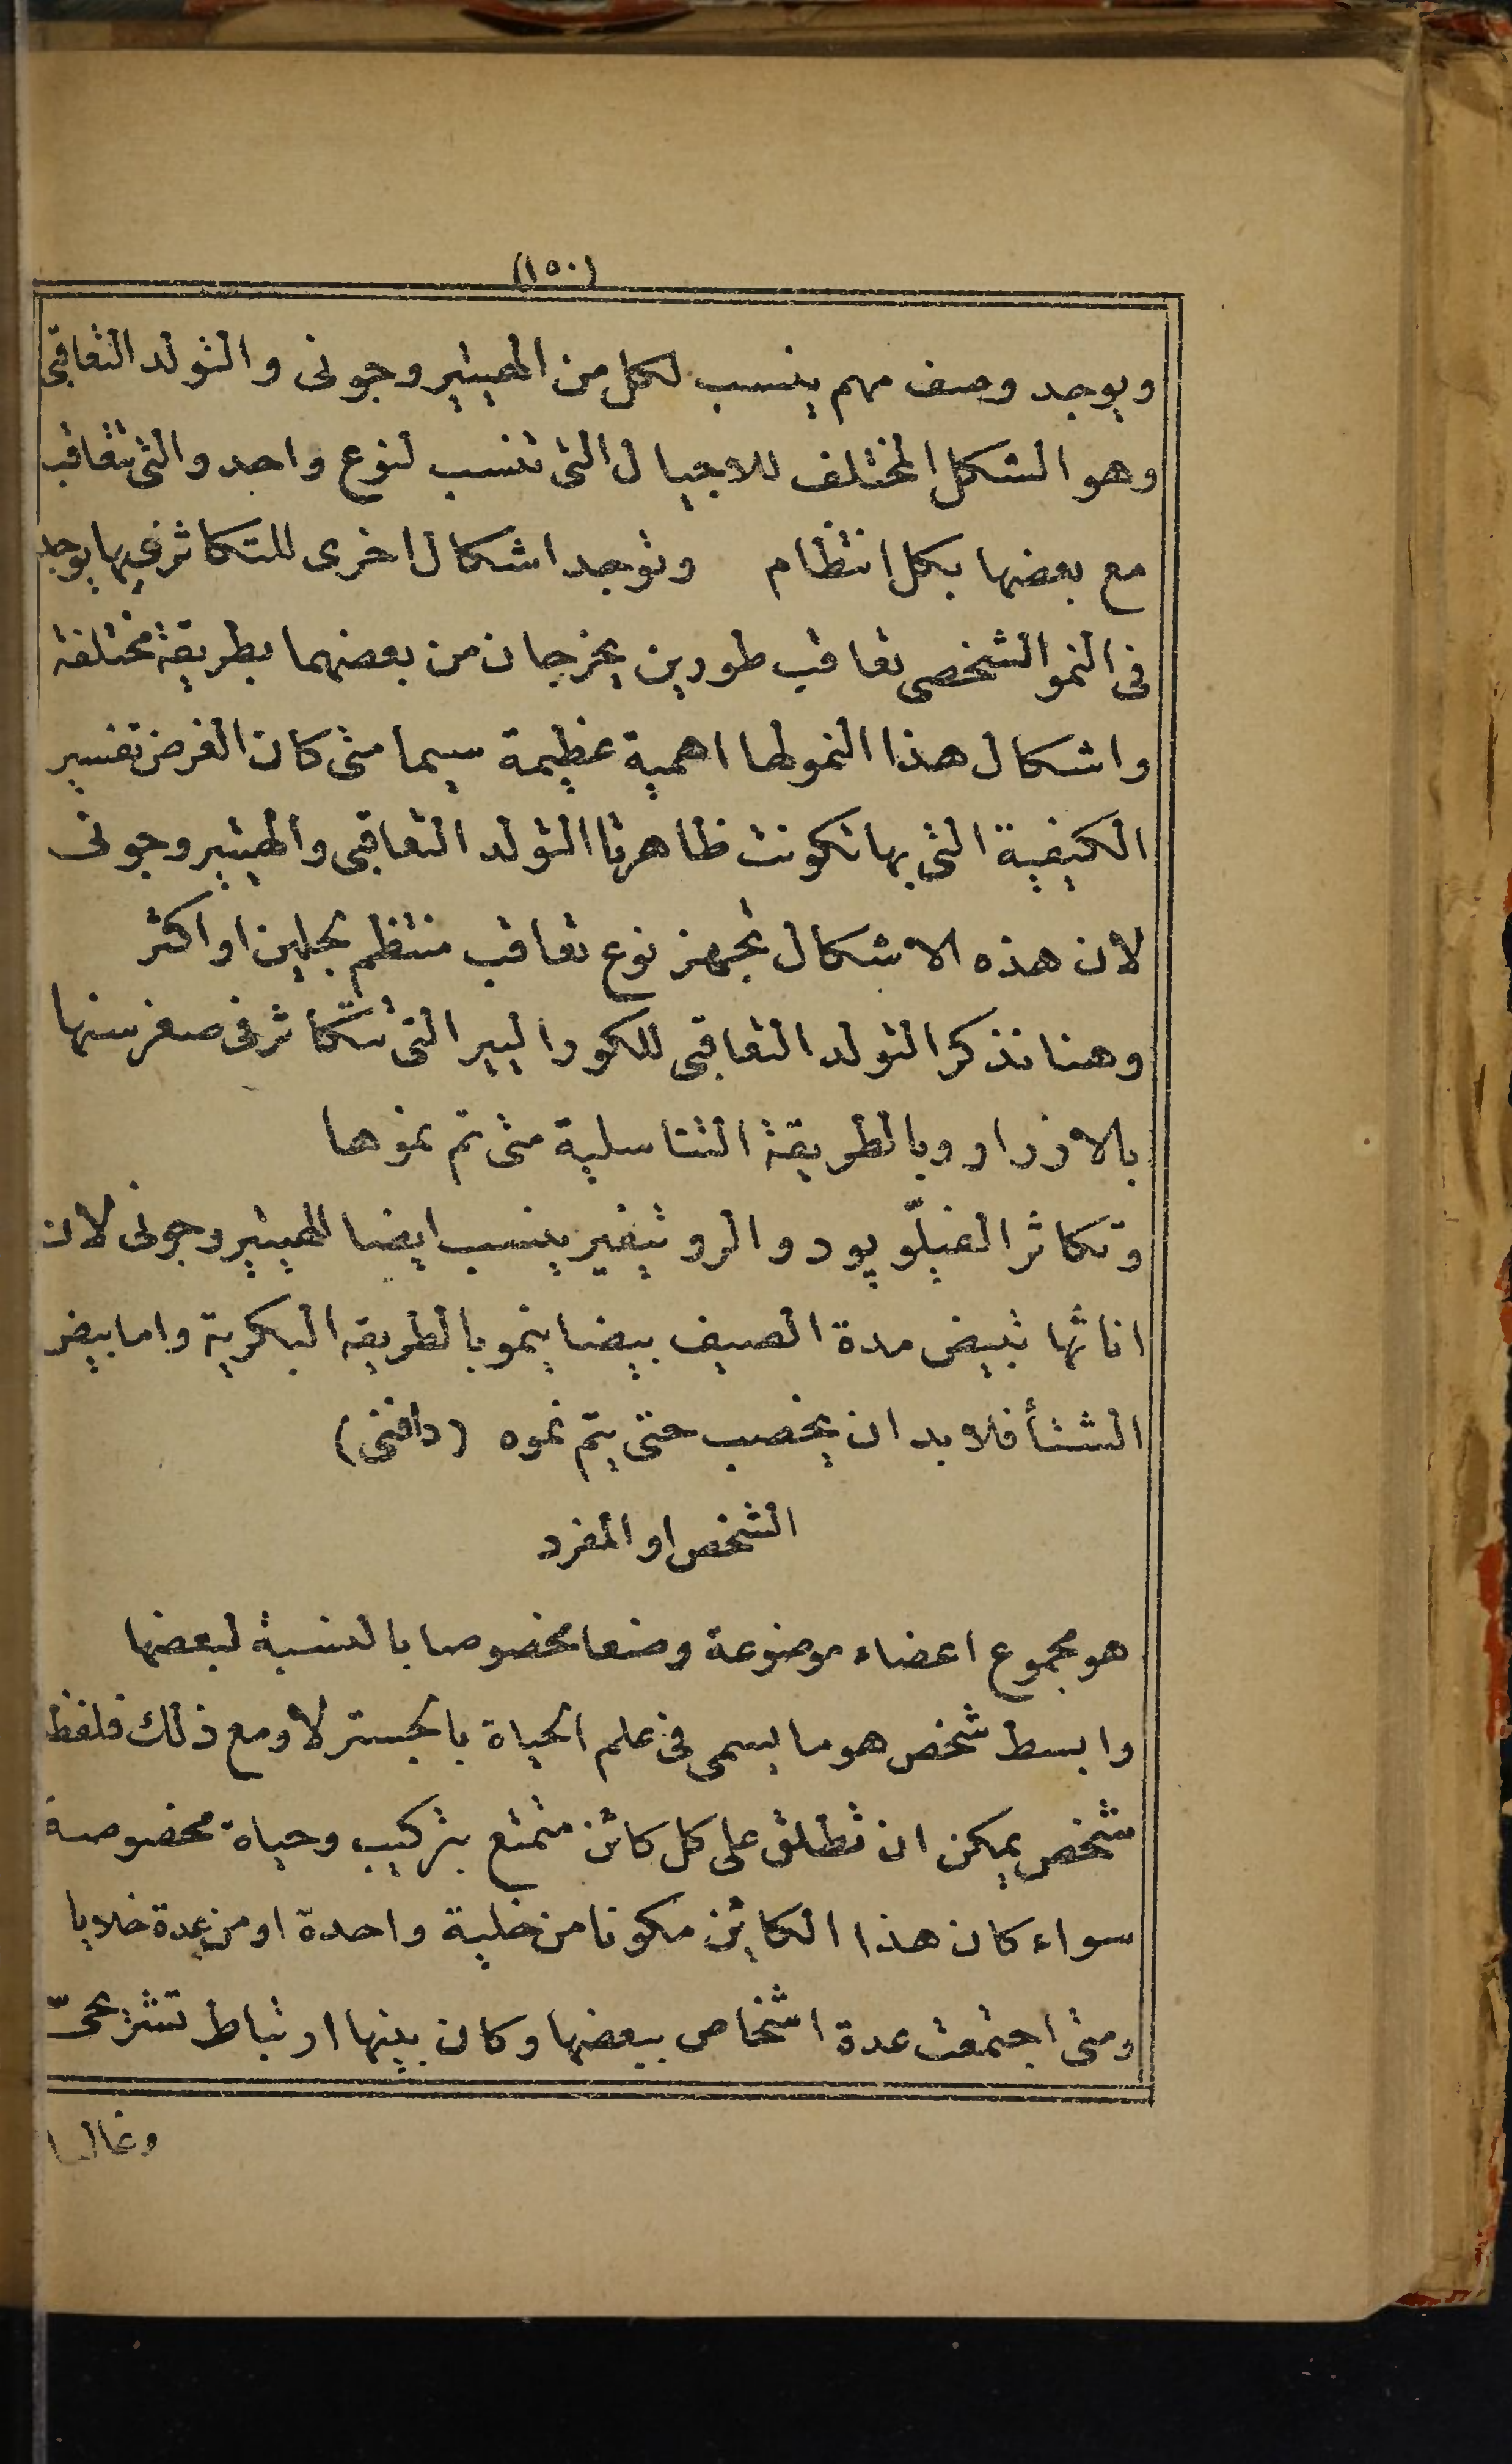 (١٥٠)
ويوجد وصف مهم ينسب لكل من الهيتيروجونى والتولد التعاقبى
وهو الشكل المختلف للاجيال التى تنسب لنوع واحد والتى تتعاقب
مع بعضها بكل انتظام وتوجد اشكال اخرى للتكاثر فيها يوجد
فى النمو الشخصى تعاقب طورين يخرجان من بعضهما بطريقة مختلفة
واشكال هذا النمو لها اهمية عظيمة سيما متى كان الغرض تفسير
الكيفية التى بها تكونت ظاهرتا التولد التعاقبى والهيتيروجونى
لان هذه الاشكال تجهز نوع تعاقب منتظم لجيلين او اكثر
وهنا نذكر التولد التعاقبى للكوراليير التى تتكاثر فى صغر سنها
بالازرار وبالطريقة التناسلية متى تم نموها
وتكاثر الفيلّوپود والروتيفير ينسب ايضا للهيتيروجونى لان
اناثها تبيض مدة الصيف بيضا ينمو بالطريقه البكرية واما بيض
الشتأ فلابد ان يخصب حتى يتم نموه (دافنى)
الشخص او المفرد
هو مجموع اعضاء موضوعة وضعا مخصوصا بالنسبة لبعضها
وابسط شخص هو ما يسمى فى علم الحياة بالجسترلا ومع ذلك فلفظ
شخص يمكن ان تطلق على كل كائن متمتع بتركيب وحياة مخصوصة
سواء كان هذا الكائن مكونا من خلية واحدة او من عدة خلايا
ومتى اجتمعت عدة اشخاص ببعضها وكان بينها ارتباط تشريحىّ
وغالبا